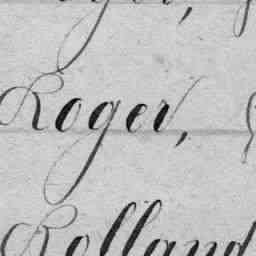 Roger,
Rolland